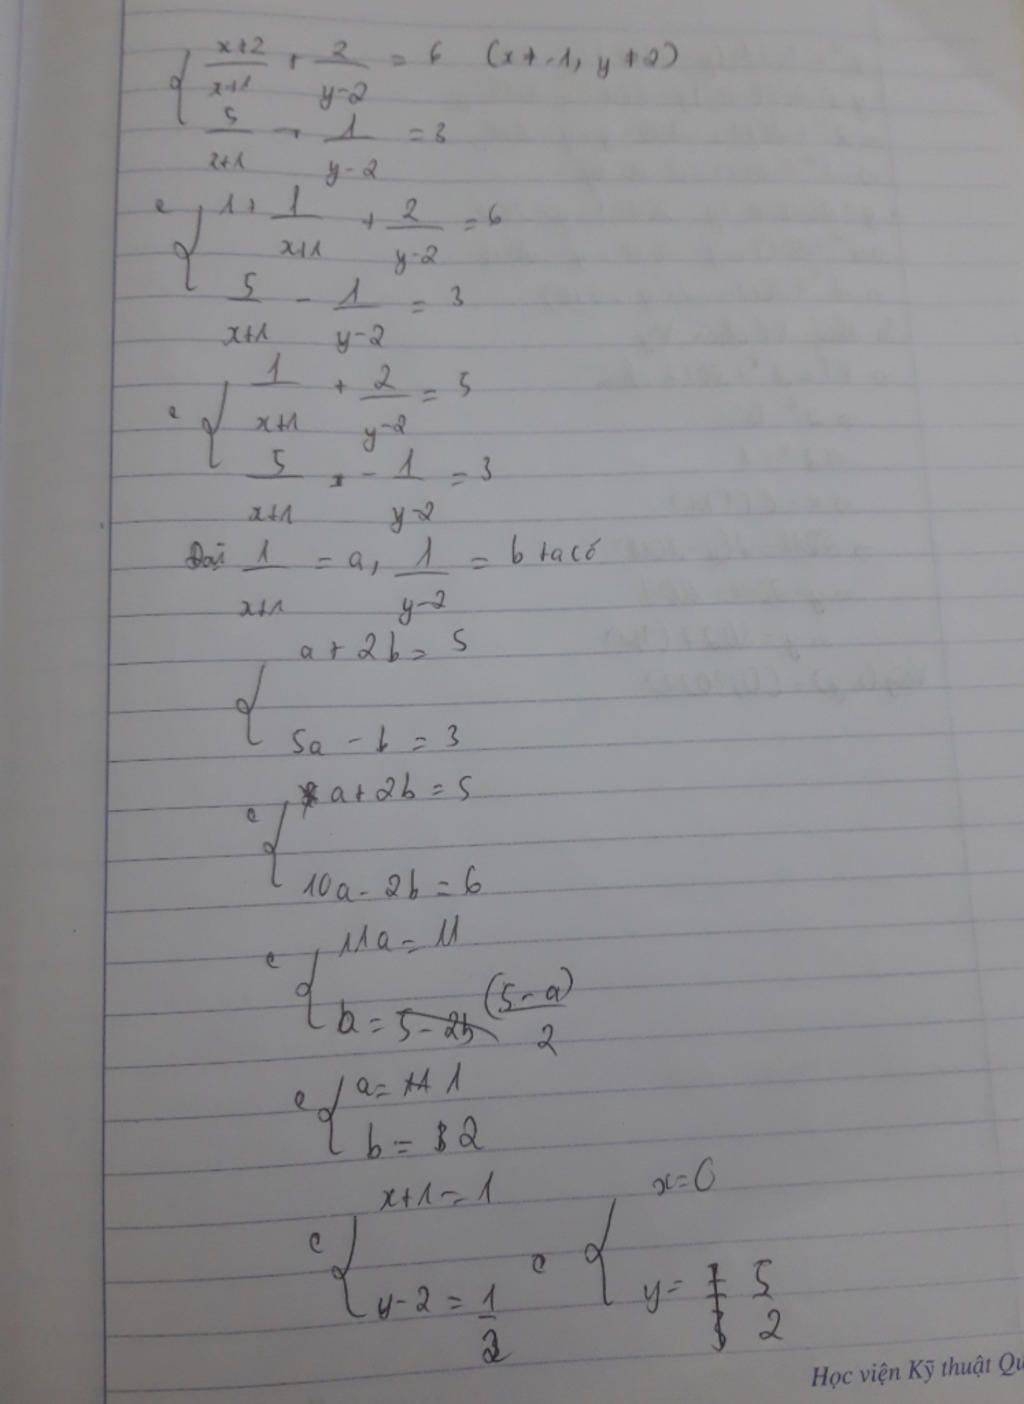 x+2/x+1 + 2/y-2 = 6 (x ≠ -1, y ≠ 2)
5/x+1 - 1/y-2 = 3
1 + 1/x+1 + 2/y-2 = 6
5/x+1 - 1/y-2 = 3
1/x+1 + 2/y-2 = 5
5/x+1 - 1/y-2 = 3
Đặt 1/x+1 = a, 1/y-2 = b ta có
a + 2b = 5
5a - b = 3
a + 2b = 5
10a - 2b = 6
11a = 11
b = (5-a)/2
a = 1
b = 2
x+1 = 1 x = 0
y-2 = 1/2 y = 5/2
Học viện Kỹ thuật Qu